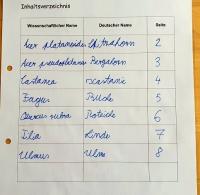 Inhaltsverzeichnis
Wissenschaftlicher Name Deutscher Name Seite
Acer platanoides Spitzahorn 2
Acer pseudoplatanus Bergahorn 3
Castanea 4
Fagus Buche 5
Quercus rubra Roteiche 6
Tilia Linde 7
Ulmus Ulme 8